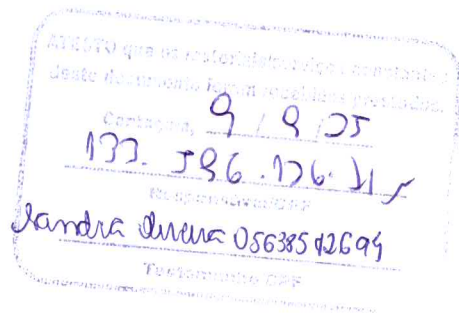 ATESTO que os materiais/serviços constantes
deste documento foram recebidos/prestados.
Contagem, 9 / 9 / 25
133. 596 .126.
Responsável/CPF
Sandra Oliveira 05638512694
Testemunha CPF